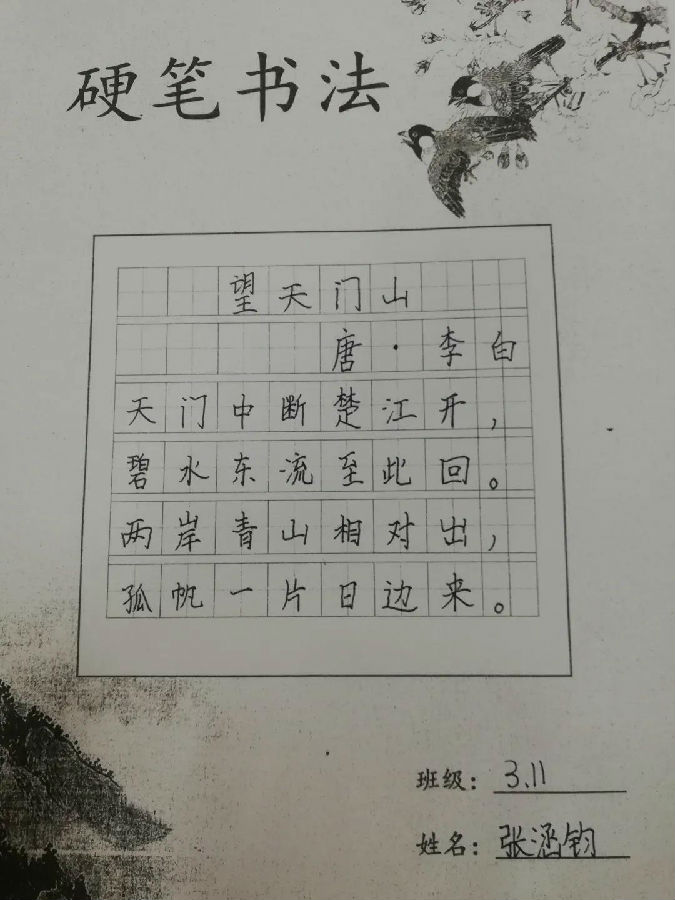 硬笔书法
望天门山
唐·李白
天门中断楚江开，
碧水东流至此回。
两岸青山相对出，
孤帆一片日边来。
班级：3.11
姓名：张涵钧